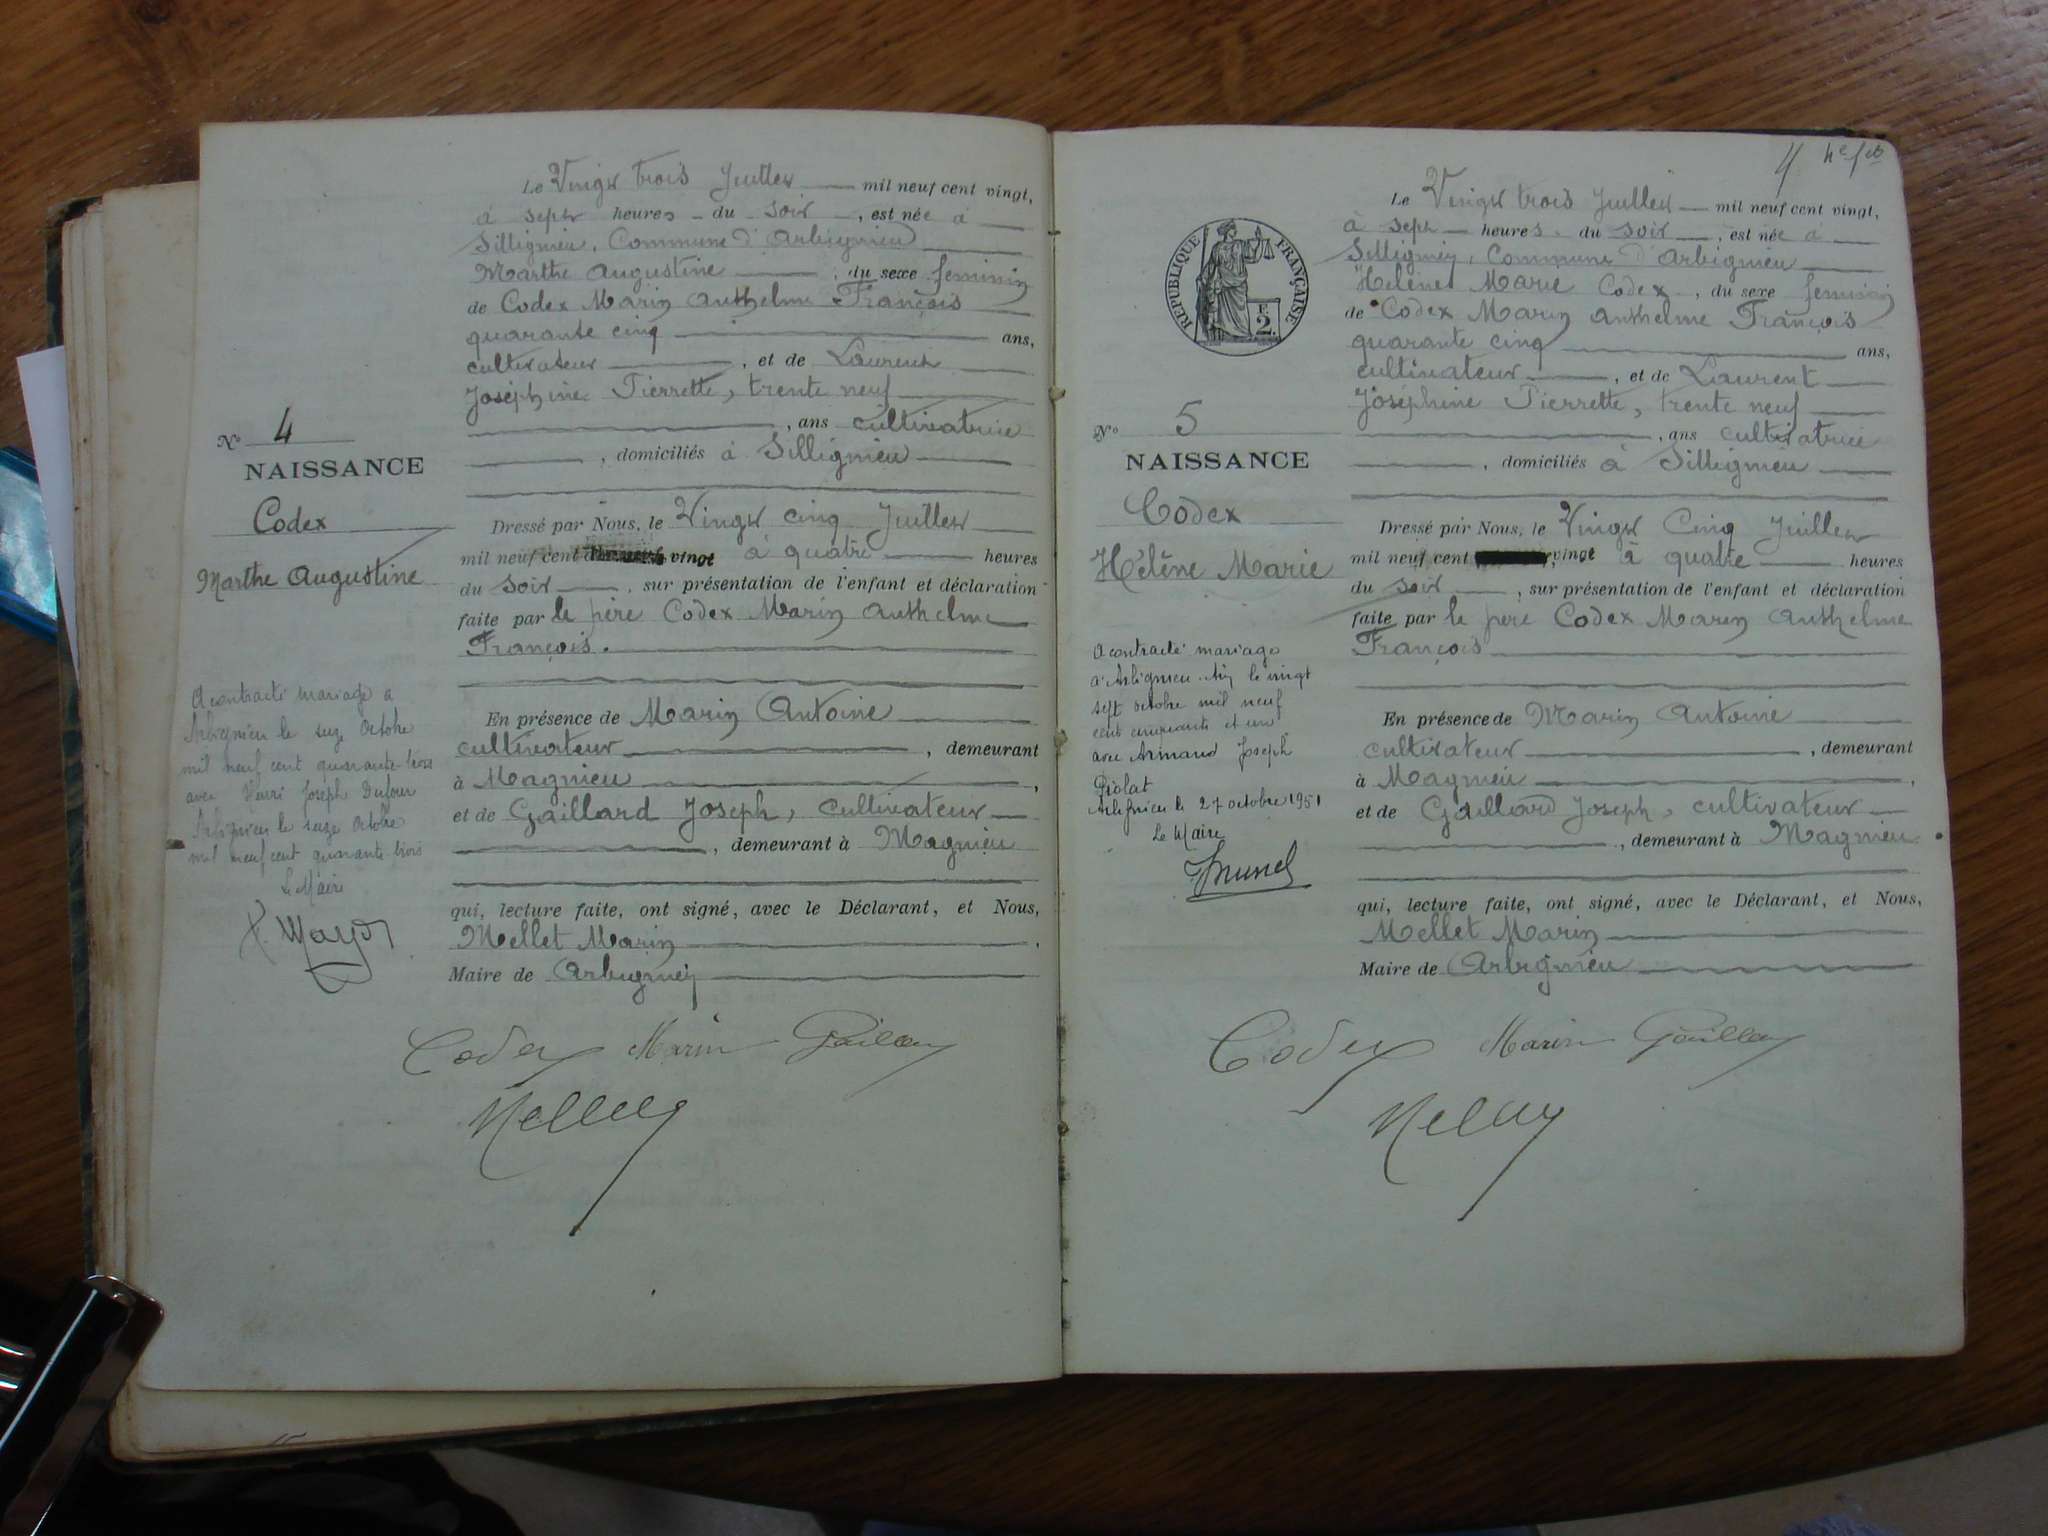 Le Vingt trois Juillet mil neuf cent vingt,
à sept heures du soir, est née à
Sillignieu, Commune d'Arbignieu
Marthe Augustine, du sexe feminin
de Codex Marin Anthelme François
quarante cinq ans,
cultivateur, et de Laurent
Joséphine Pierrette, trente neuf
, ans cultivatrice
, domiciliés à Sillignieu
No 4
NAISSANCE
Codex
Marthe Augustine
Dressé par Nous, le Vingt cinq Juillet
mil neuf cent vingt à quatre heures
du soir, sur présentation de l'enfant et déclaration
faite par le père Codex Marin Anthelme
François.
En présence de Marin Antoine
cultivateur, demeurant
à Magnieu,
et de Gaillard Joseph, cultivateur
, demeurant à Magnieu
qui, lecture faite, ont signé, avec le Déclarant, et Nous,
Mellet Marin,
Maire de Arbignieu
A contracté mariage a
Arbignieu le seize Octobre
mil neuf cent quarante trois
avec Henri Joseph Dufour
Arbignieu le seize Octobre
mil neuf cent quarante trois
Le Maire
Codex Marin Gaillard
4
Le Vingt trois Juillet mil neuf cent vingt,
à sept heures du soir, est née à
Sillignieu, Commune d'Arbignieu
Hélène Marie Codex, du sexe feminin
de Codex Marin Anthelme François
quarante cinq ans,
cultivateur, et de Laurent
Joséphine Pierrette, trente neuf
, ans cultivatrice
, domiciliés à Sillignieu
REPUBLIQUE FRANÇAISE
F.
2.
No 5
NAISSANCE
Codex
Hélène Marie
Dressé par Nous, le Vingt Cinq Juillet
mil neuf cent vingt à quatre heures
du soir, sur présentation de l'enfant et déclaration
faite par le père Codex Marin Anthelme
François
En présence de Marin Antoine
cultivateur, demeurant
à Magnieu,
et de Gaillard Joseph, cultivateur
, demeurant à Magnieu
qui, lecture faite, ont signé, avec le Déclarant, et Nous,
Mellet Marin
Maire de Arbignieu
A contracté mariage
à Arbignieu Ain le vingt
sept octobre mil neuf
cent cinquante et un
avec Armand Joseph
Piolat
Arbignieu le 27 octobre 1951
Le Maire
Codex Marin Gaillard